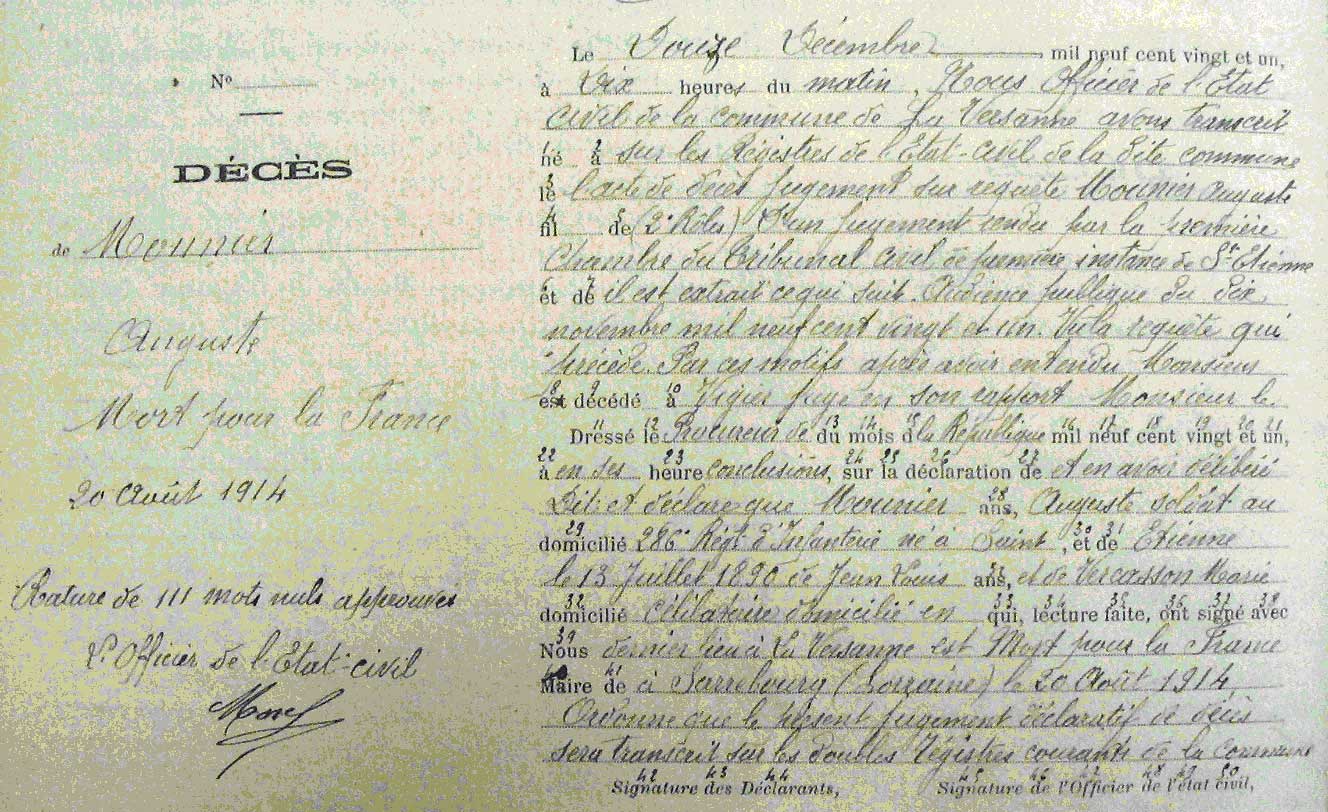 Nº
DÉCÈS
de Mounier
Auguste
Mort pour la France
20 Août 1914
Rature de 111 mots nuls approuvés
L'Officier de l'Etat-civil
Morel
Le Douze Décembre mil neuf cent vingt et un,
à Dix heures du matin, Nous Officier de l'Etat
Civil de la commune de La Versanne avons transcrit
1 2
né à sur les Régistres de l'Etat-civil de la dite commune
3
le l'acte de décès jugement sur requête Mounier Auguste
4 5
fil de (2e Rôles) D'un jugement rendu par la première
Chambre du Tribunal civil de première instance de St Etienne
6 7
et de il est extrait ce qui suit. Audience publique du dix
novembre mil neuf cent vingt et un. Vu la requête qui
précède. Par ces motifs après avoir entendu Monsieur
8 9 10
est décédé à Vigier juge en son rapport Monsieur le
11 12 13 14 15 16 17 18 19 20 21
Dressé le Procureur de du mois d la République mil neuf cent vingt et un,
22 23 24 25 26 27
à en ses heure conclusions, sur la déclaration de et en avoir délibéré
28
Dit et déclare que Mounier ans, Auguste soldat au
29 30 31
domicilié 286e Régt d'Infanterie né à Saint, et de Etienne
le 13 Juillet 1890 de Jean Louis ans, et de Vercasson Marie
32 33 34 35 36 37 38
domicilié célibataire domicilié en qui, lecture faite, ont signé avec
39
Nous dernier lieu à La Versanne est Mort pour la France
40 41
Maire de à Sarrebourg (Lorraine) le 20 Août 1914
Ordonne que le présent jugement déclaratif de décès
sera transcrit sur les doubles Régistres courants de la Commune
42 43 44 45 46 47 48 49 50
Signature des Déclarants, Signature de l'Officier de l'état civil,